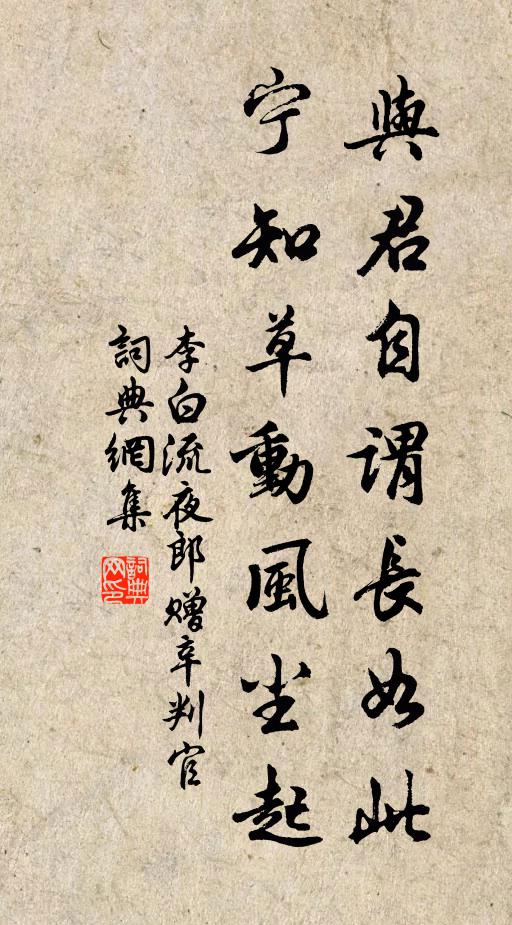 與君自謂長如此
宁知草動風尘起
李白流夜郎赠辛判官
詞典網集
詞典网印